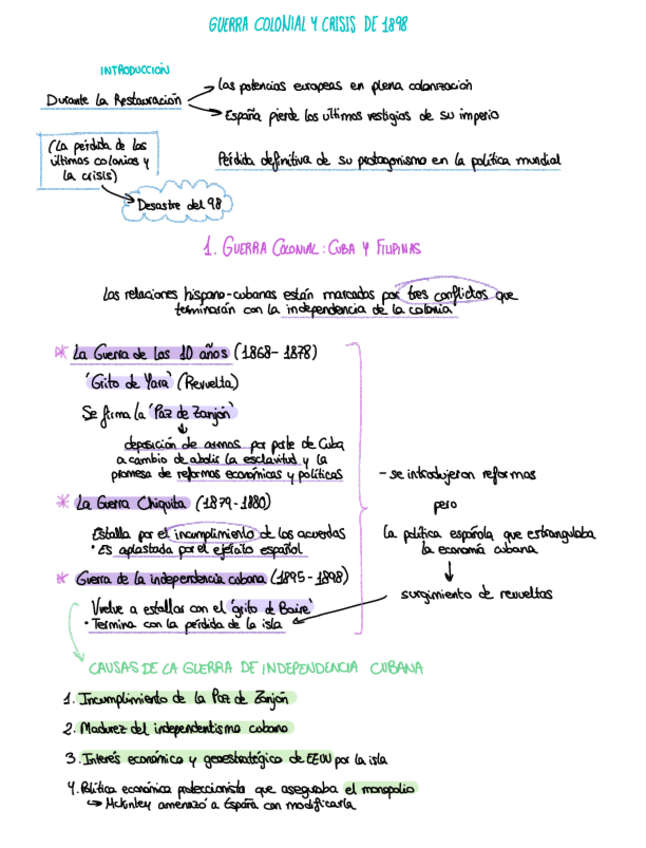 GUERRA COLONIAL Y CRISIS DE 1898
INTRODUCCIÓN
Durante la Restauración
Las potencias europeas en plena colonización
España pierde los últimos vestigios de su imperio
(La pérdida de las
últimas colonias y
la crisis)
Pérdida definitiva de su protagonismo en la política mundial
Desastre del 98
1. GUERRA COLONIAL: CUBA Y FILIPINAS
Las relaciones hispano-cubanas están marcadas por tres conflictos que
terminarán con la independencia de la colonia
* La Guerra de los 10 años (1868-1878)
'Grito de Yara' (Revuelta)
Se firma la 'Paz de Zanjón'
deposición de armas por parte de Cuba
a cambio de abolir la esclavitud y la
promesa de reformas económicas y políticas
* La Guerra Chiquita (1879-1880)
Estalla por el incumplimiento de los acuerdos
• Es aplastada por el ejército español
* Guerra de la independencia cubana (1895-1898)
Vuelve a estallar con el 'grito de Baire'
• Termina con la pérdida de la isla
- se introdujeron reformas
pero
la política española que estrangulaba
la economía cubana
surgimiento de revueltas
CAUSAS DE LA GUERRA DE INDEPENDENCIA CUBANA
1. Incumplimiento de la Paz de Zanjón
2. Madurez del independentismo cubano
3. Interés económico y geoestratégico de EEUU por la isla
4. Política económica proteccionista que aseguraba el monopolio
↪ McKinley amenazó a España con modificarla